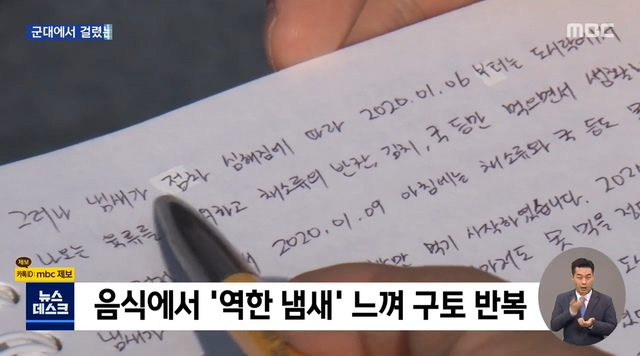 군대에서 걸렸는
mbc
그러나 냄새가 점차 심해짐에 따라 2020.01.06 부터는 도시락에서
나오는 육류를 하고 채소류의 반찬, 김치, 국 등만 먹으면서 생활
2020.01.09 아침에는 채소류와 국 등도
만 먹기 시작하였습니다.
못 먹을 정도
냄새가
제보
카톡ID mbc 제보
뉴스
데스크
음식에서 '역한 냄새' 느껴 구토 반복